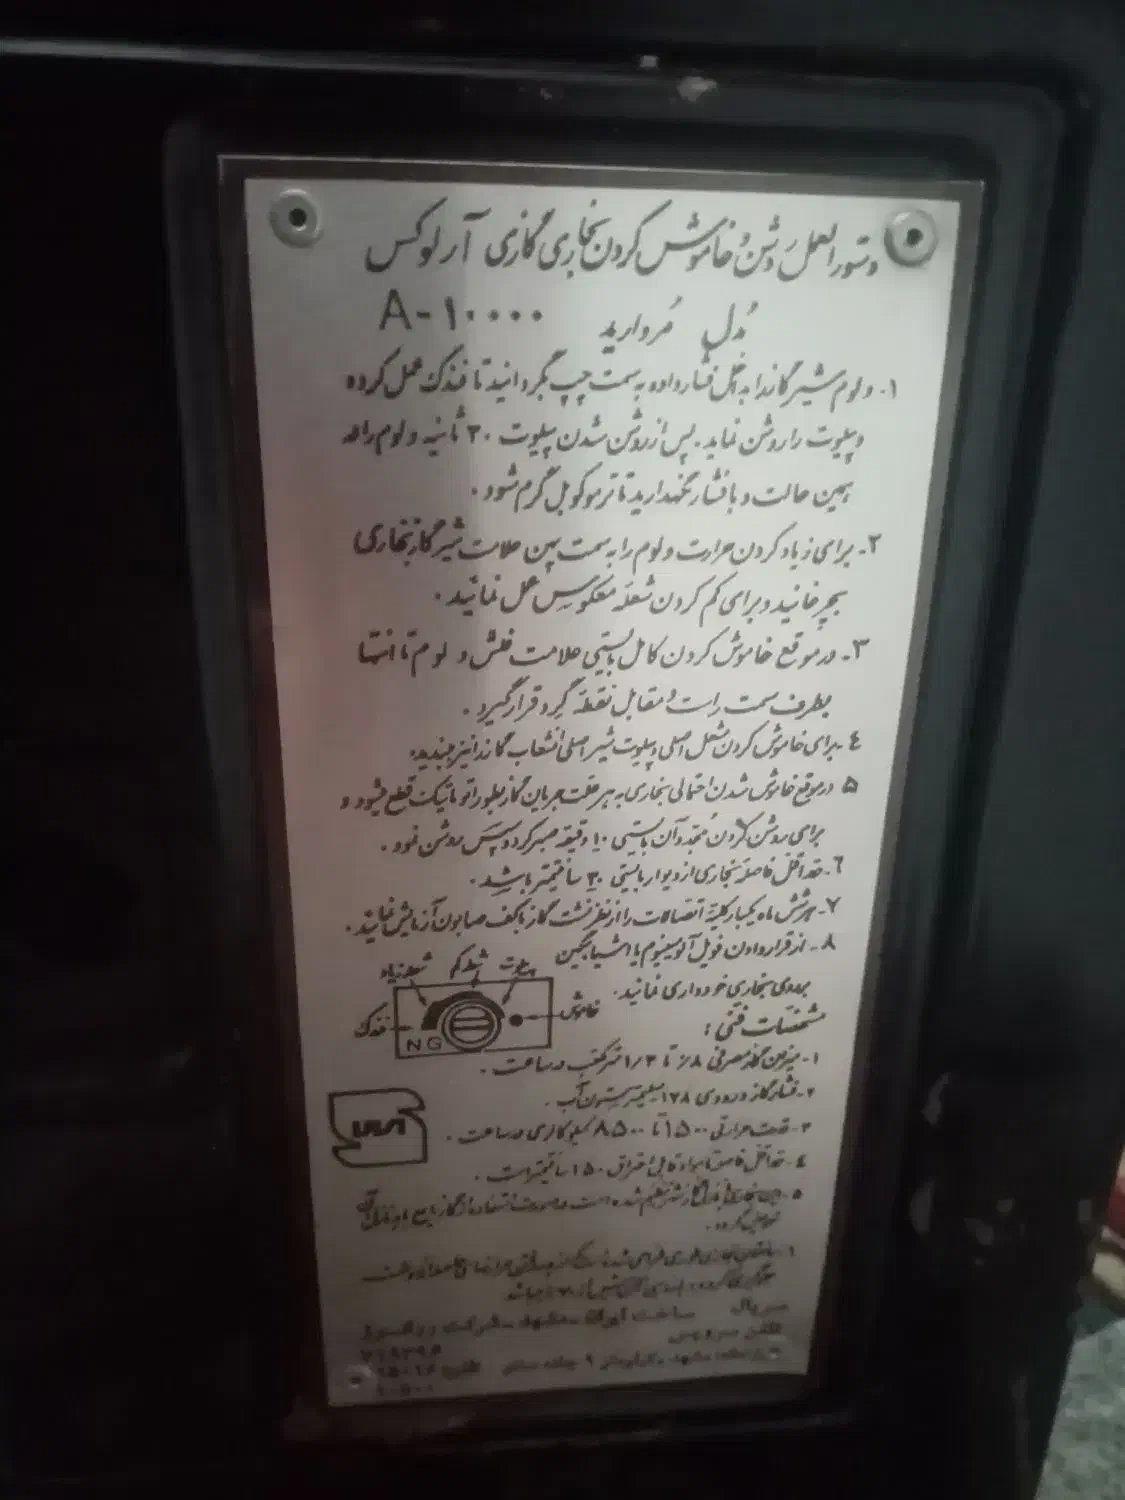 دستورالعمل روشن و خاموش کردن بخاری گازی آرلوکس
مُدل مُروارید A-۱۰۰۰۰
۱- ولوم شیر گاز را به داخل فشار داده به سمت چپ بگردانید تا فندک عمل کرده
و پیلوت را روشن نماید. پس از روشن شدن پیلوت ۲۰ ثانیه ولوم را در
همین حالت و با فشار نگهدارید تا ترموکوپل گرم شود.
۲- برای زیاد کردن حرارت ولوم را به سمت پهن علامت شیر گاز بخاری
بچرخانید و برای کم کردن شعله معکوس عمل نمائید.
۳- در موقع خاموش کردن کامل بایستی علامت فلش ولوم تا انتها
بطرف سمت راست و مقابل نقطه گرد قرار گیرد.
٤- برای خاموش کردن مشعل اصلی و پیلوت شیر اصلی انشعاب گاز را نیز ببندید.
۵ در موقع خاموش شدن احتمالی بخاری به هر علت جریان گاز بطور اتوماتیک قطع میشود و
برای روشن کردن مجدد آن بایستی ۱۰ دقیقه صبر کرد و سپس روشن نمود.
٦- حداقل فاصله بخاری از دیوار بایستی ۲۰ سانتیمتر باشد.
۷- هر شش ماه یکبار کلیه اتصالات را از نظر نشت گاز با کف صابون آزمایش نمائید.
۸- از قرار دادن فویل آلومینیوم یا اشیا سنگین
بروی بخاری خودداری نمائید.
پیلوت
شعله کم
شعله زیاد
خاموش
فندک
NG
مشخصات فنی:
۱- میزان گاز مصرفی ۰/۸ تا ۱/۳ متر مکعب در ساعت.
۲- فشار گاز ورودی ۱۷۸ میلیمتر ستون آب.
۳- قدرت حرارتی ۱۵۰۰ تا ۸۵۰۰ کیلوکالری در ساعت.
٤- حداقل فاصله تا مواد قابل احتراق ۱۵۰ سانتیمتر است.
سریال ساخت ایران - مشهد - شرکت
تلفن سرویس